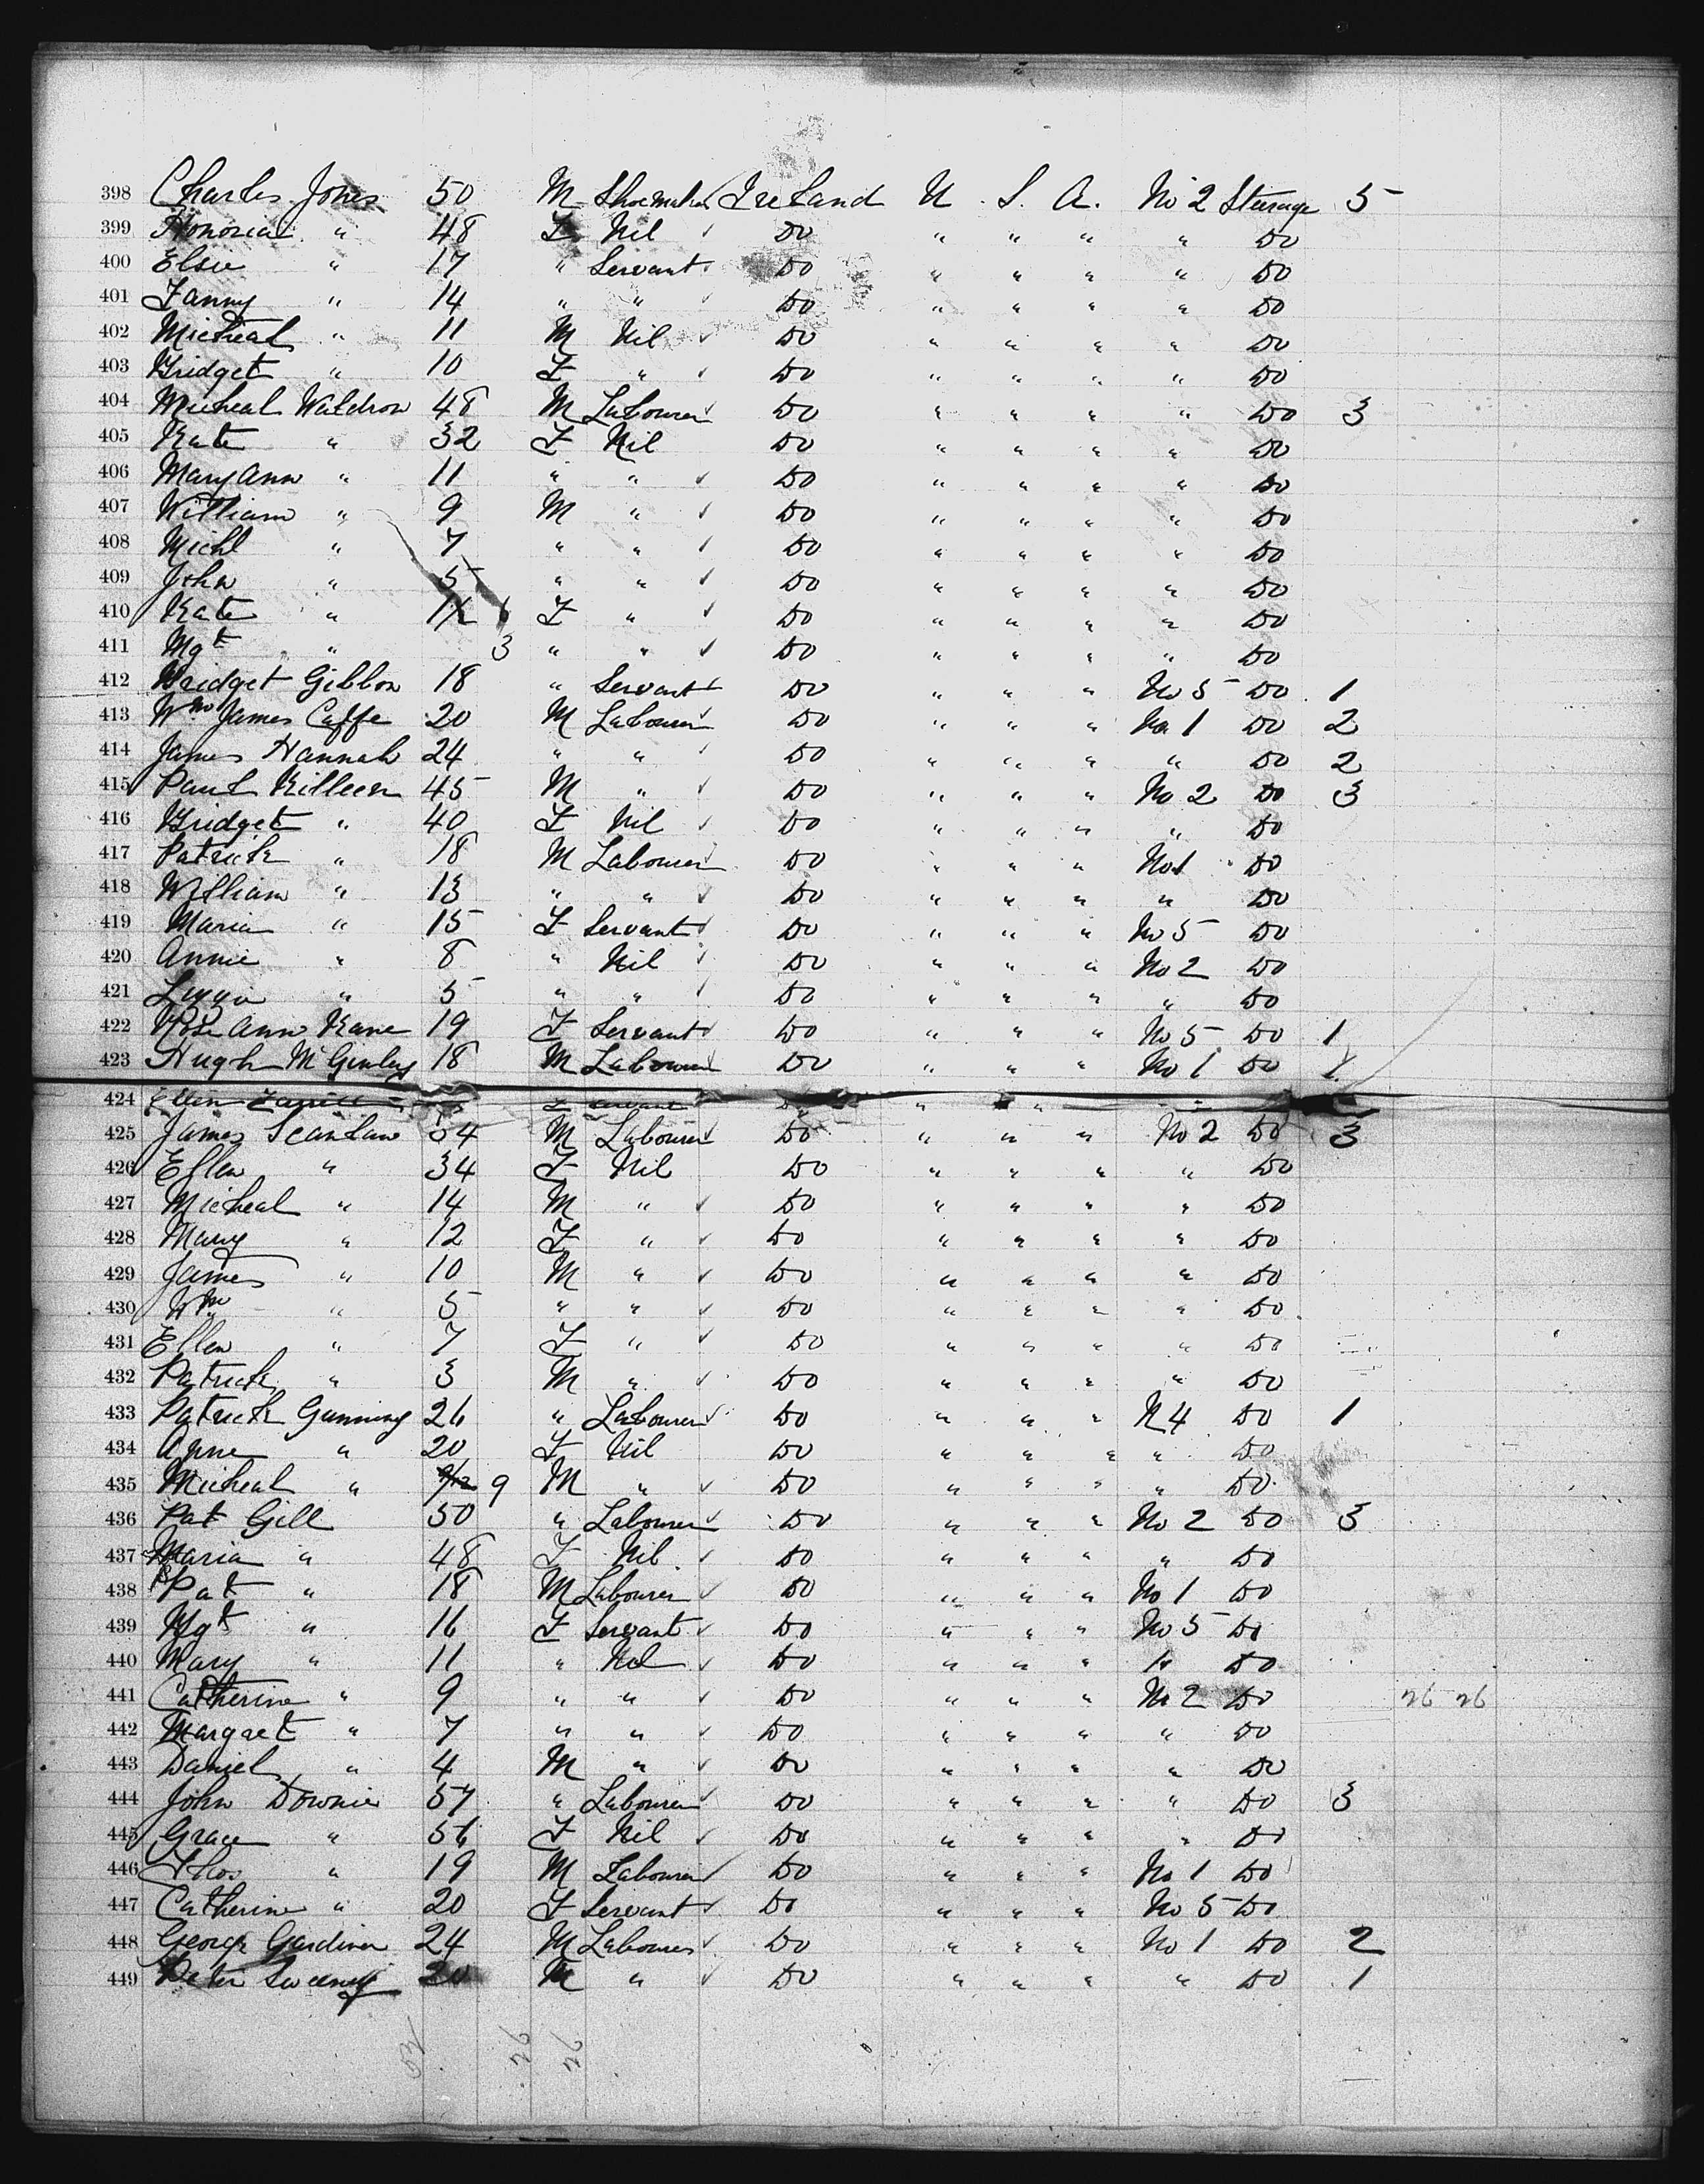 398 Charles Jones 50 M Shoemaker Ireland U. S. A. No 2 Steerage 5
399 Honoria " 48 F Nil ✓ Do " " " " Do
400 Elsie " 17 " Servant ✓ Do " " " " Do
401 Fanny " 14 " " ✓ Do " " " " Do
402 Micheal " 11 M Nil ✓ Do " " " " Do
403 Bridget " 10 F " ✓ Do " " " " Do
404 Micheal Waldron 48 M Labourer ✓ Do " " " " Do 3
405 Kate " 32 F Nil Do " " " " Do
406 Mary Ann " 11 " " ✓ Do " " " " Do
407 William " 9 M " ✓ Do " " " " Do
408 Michl " 7 " " ✓ Do " " " " Do
409 John " 5 " " ✓ Do " " " " Do
410 Kate " 1½ 6 F " ✓ Do " " " " Do
411 Mgt " 3 " " ✓ Do " " " " Do
412 Bridget Gibbon 18 " Servant ✓ Do " " " No 5 Do 1
413 Wm James Caffe 20 M Labourer ✓ Do " " " No 1 Do 2
414 James Hannah 24 " " ✓ Do " " " " Do 2
415 Paul Killeen 45 M " ✓ Do " " " No 2 Do 3
416 Bridget " 40 F Nil ✓ Do " " " " Do
417 Patrick " 18 M Labourer ✓ Do " " " No 1 Do
418 William " 13 " " ✓ Do " " " " Do
419 Maria " 15 F Servant ✓ Do " " " No 5 Do
420 Annie " 8 " Nil ✓ Do " " " No 2 Do
421 Lizzie " 5 " " ✓ Do " " " " Do
422 Rose Ann Kane 19 F Servant ✓ Do " " " No 5 Do 1
423 Hugh McGinley 18 M Labourer ✓ Do " " " No 1 Do 1
424 Ellen F Servant
425 James Scanlan 34 M Labourer ✓ Do " " " No 2 Do 3
426 Ellen " 34 F Nil Do " " " " Do
427 Micheal " 14 M " ✓ Do " " " " Do
428 Mary " 12 F " ✓ Do " " " " Do
429 James " 10 M " ✓ Do " " " " Do
430 Wm " 5 " " ✓ Do " " " " Do
431 Ellen " 7 F " ✓ Do " " " " Do
432 Patrick " 3 M " ✓ Do " " " " Do
433 Patrick Gunning 26 " Labourer ✓ Do " " " N 4 Do 1
434 Anne " 20 F Nil Do " " " " Do
435 Micheal " 9/12 9 M " ✓ Do " " " " Do
436 Pat Gill 50 " Labourer ✓ Do " " " No 2 Do 3
437 Maria " 48 F Nil ✓ Do " " " " Do
438 Pat " 18 M Labourer ✓ Do " " " No 1 Do
439 Mgt " 16 F Servant ✓ Do " " " No 5 Do
440 Mary " 11 " Nil ✓ Do " " " " Do
441 Catherine " 9 " " ✓ Do " " " No 2 Do 26 26
442 Margaret " 7 " " ✓ Do " " " " Do
443 Daniel " 4 M " ✓ Do " " " " Do
444 John Downie 57 " Labourer ✓ Do " " " " Do 3
445 Grace " 56 F Nil ✓ Do " " " " Do
446 Thos " 19 M Labourer ✓ Do " " " No 1 Do
447 Catherine " 20 F Servant ✓ Do " " " No 5 Do
448 George Gardiner 24 M Labourer ✓ Do " " " No 1 Do 2
449 Peter Sweeney 20 M " ✓ Do " " " " Do 1
52 26 26